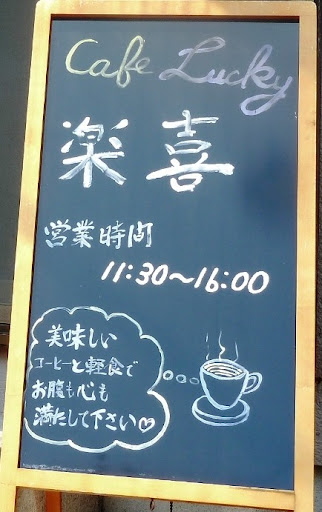 Cafe Lucky
楽喜
営業時間
11:30～16:00
美味しい
コーヒーと軽食で
お腹も心も
満たして下さい♡